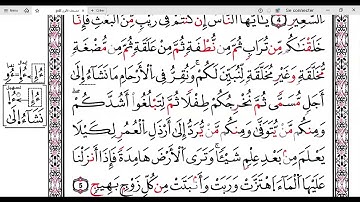 السَّعِيرِ 4 يَٰأَيُّهَا النَّاسُ إِن كُنتُمْ فِي رَيْبٍ مِّنَ الْبَعْثِ فَإِنَّا
خَلَقْنَٰكُم مِّن تُرَابٍ ثُمَّ مِن نُّطْفَةٍ ثُمَّ مِنْ عَلَقَةٍ ثُمَّ مِن مُّضْغَةٍ
مُّخَلَّقَةٍ وَغَيْرِ مُخَلَّقَةٍ لِّنُبَيِّنَ لَكُمْ وَنُقِرُّ فِي الْأَرْحَامِ مَا نَشَاءُ إِلَىٰ
أَجَلٍ مُّسَمًّى ثُمَّ نُخْرِجُكُمْ طِفْلًا ثُمَّ لِتَبْلُغُوا أَشُدَّكُمْ
وَمِنكُم مَّن يُتَوَفَّىٰ وَمِنكُم مَّن يُرَدُّ إِلَىٰ أَرْذَلِ الْعُمُرِ لِكَيْلَا
يَعْلَمَ مِن بَعْدِ عِلْمٍ شَيْئًا وَتَرَى الْأَرْضَ هَامِدَةً فَإِذَا أَنزَلْنَا
عَلَيْهَا الْمَاءَ اهْتَزَّتْ وَرَبَتْ وَأَنبَتَتْ مِن كُلِّ زَوْجٍ بَهِيجٍ 5
نَشَاءُ إِلَىٰ
Se connecter